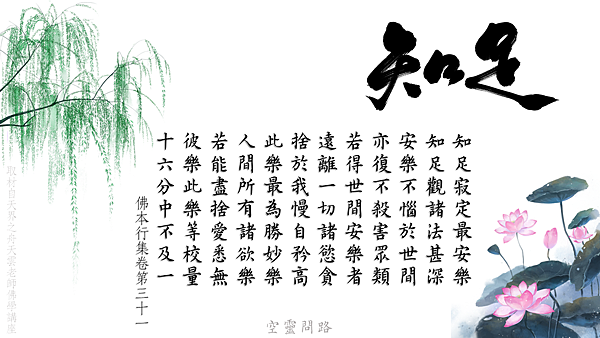 知足
知足寂定最安樂
知足觀諸法甚深
安樂不惱於世間
亦復不殺害眾類
若得世間安樂者
遠離一切諸慾貪
捨於我慢自矜高
此樂最為勝妙樂
人間所有諸欲樂
若能盡捨愛悉無
彼樂此樂等校量
十六分中不及一
佛本行集卷第三十一
空靈問路